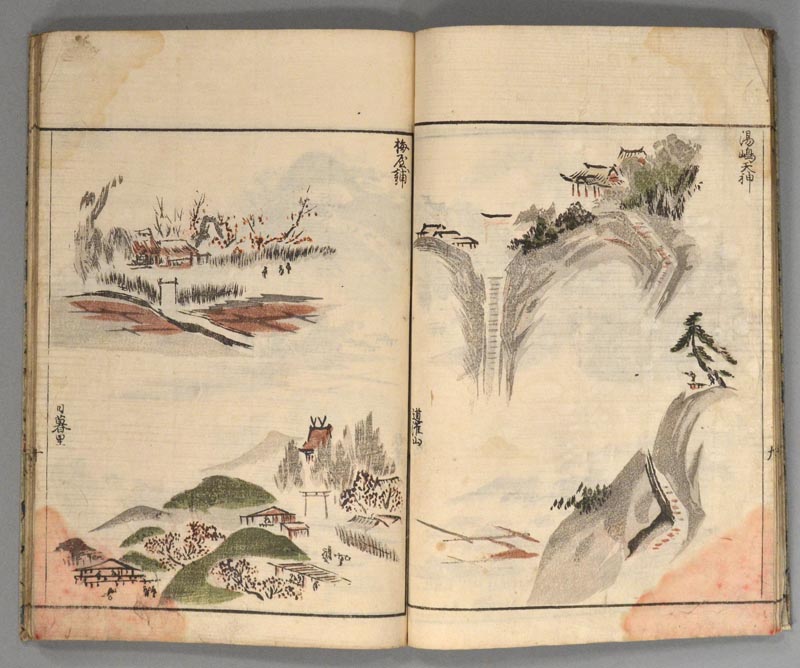 湯嶋天神
道灌山
梅屋鋪
日暮里
十